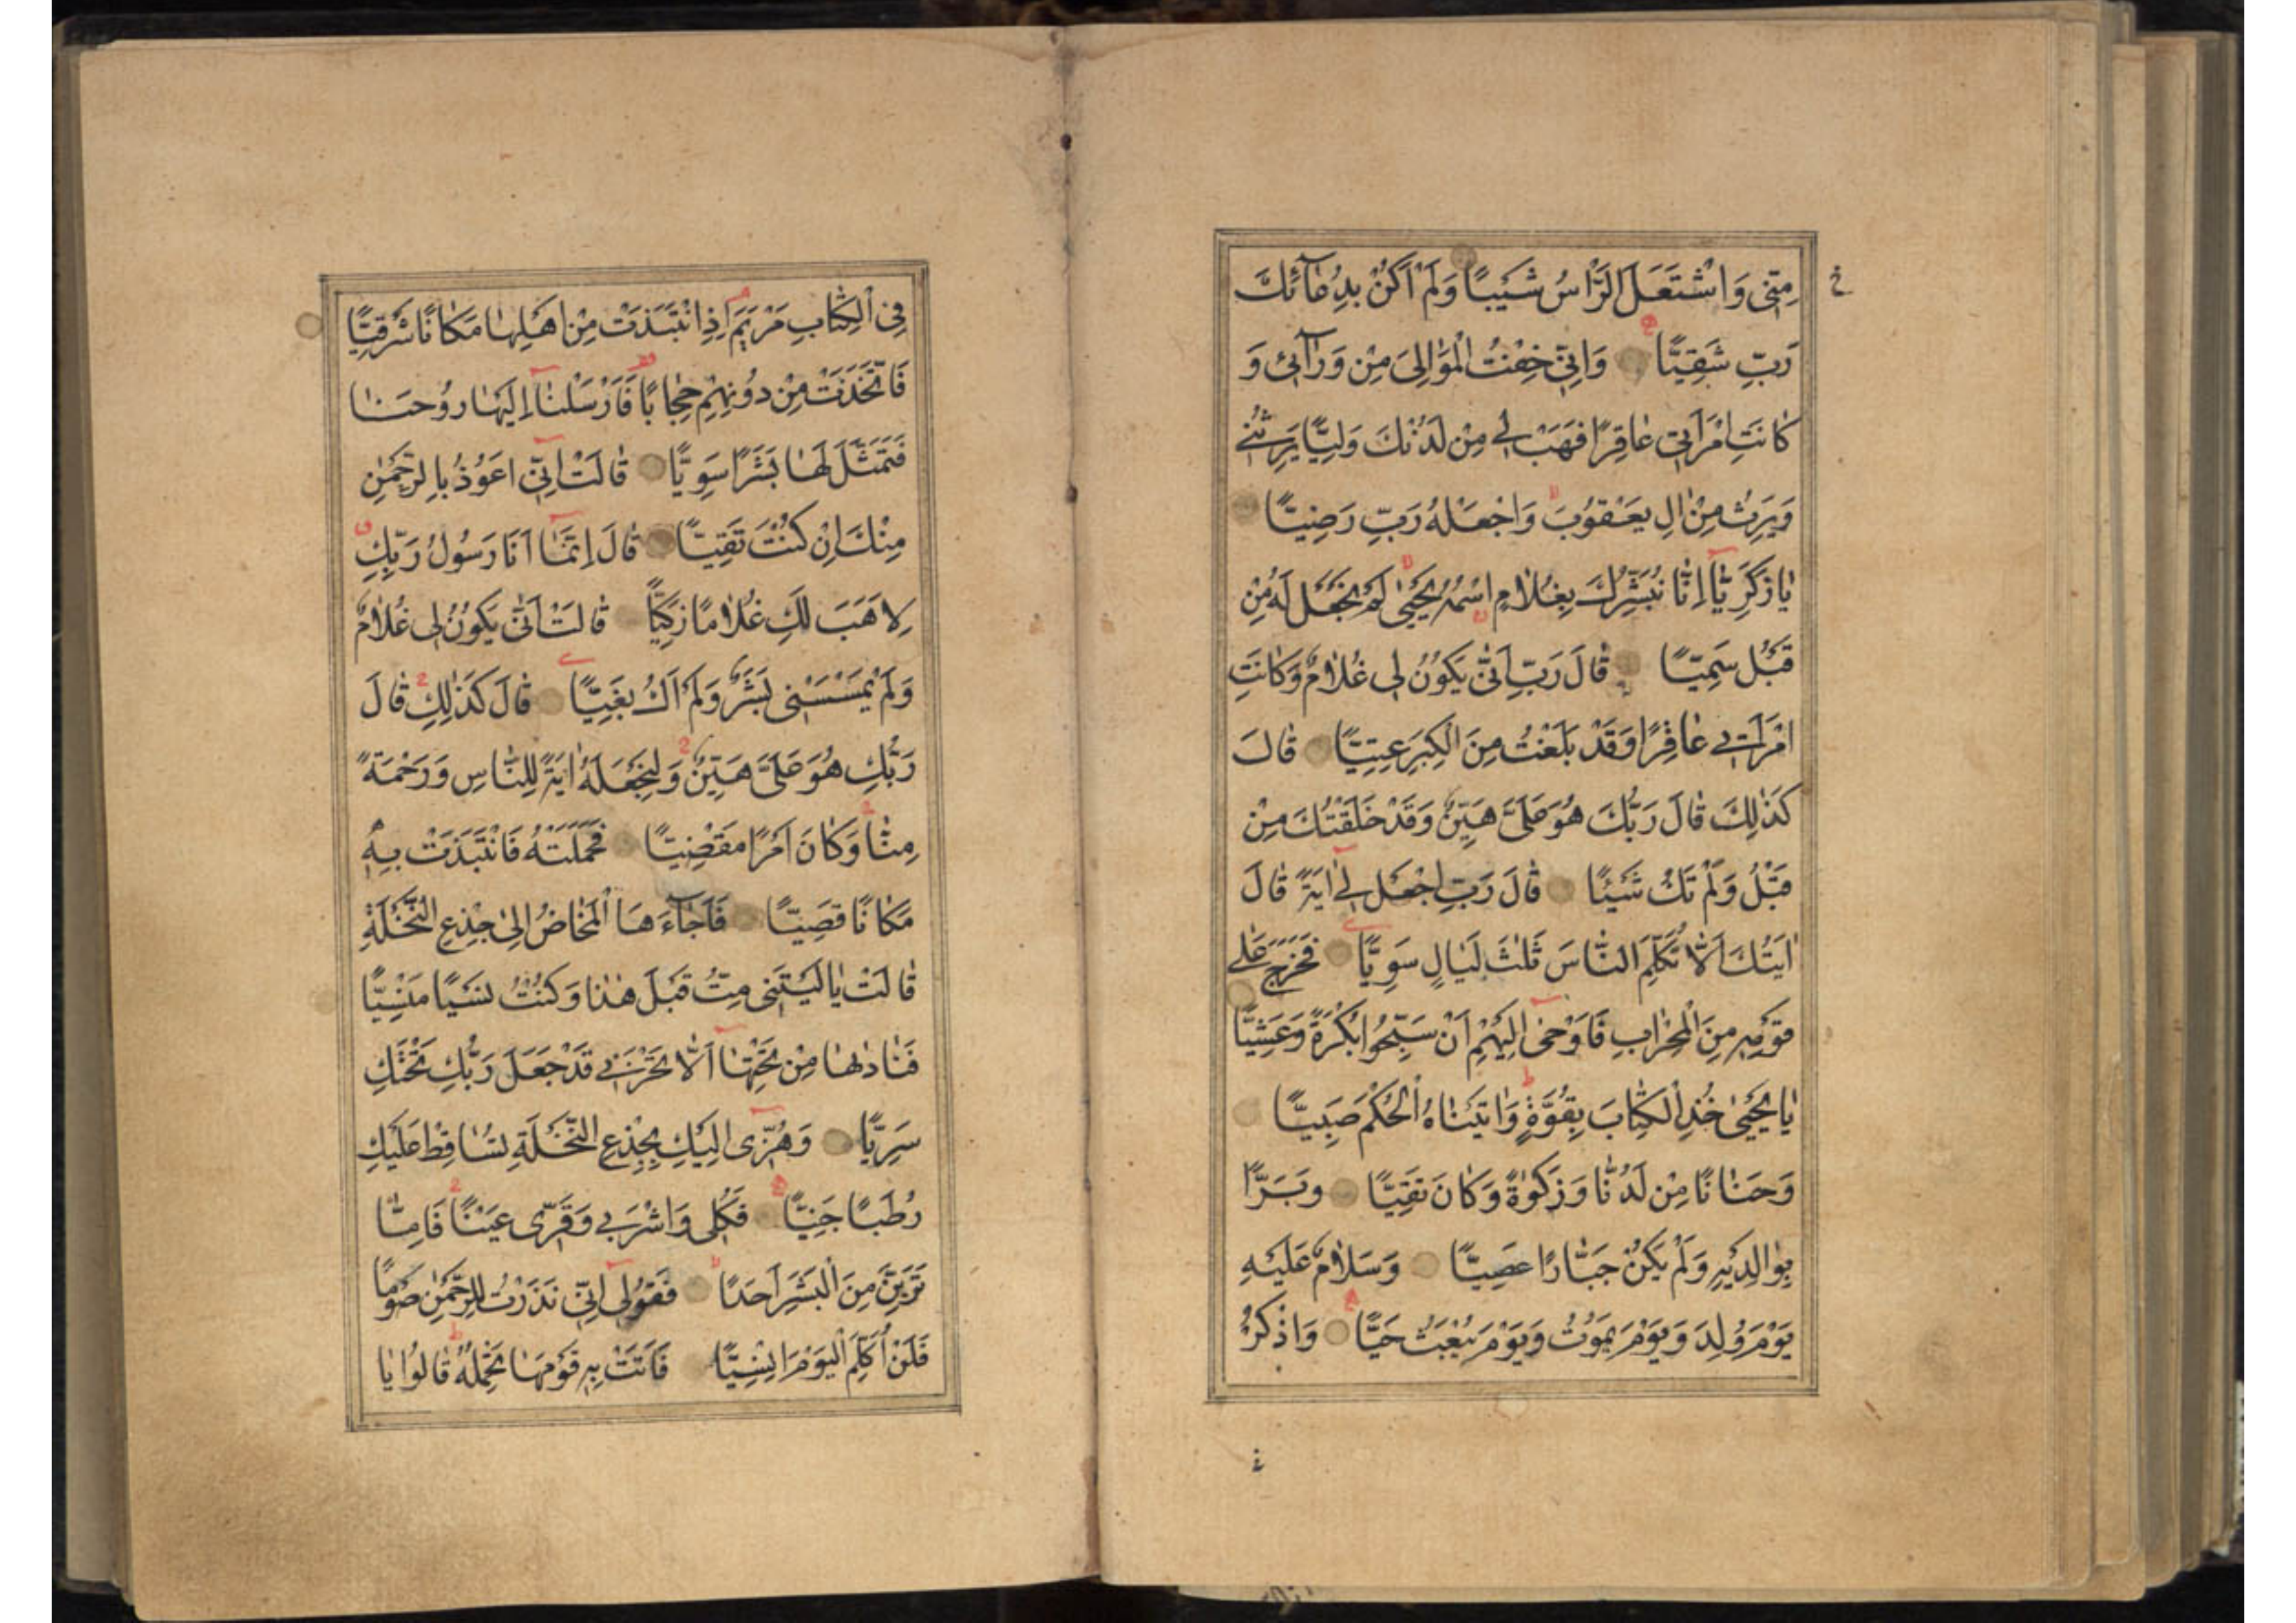 مِنّى وَاشْتَعَلَ الرَّاْسُ شَيْبًا وَلَمْ اَكُنْ بِدُعَائِكَ
رَبِّ شَقِيًّا وَاِنّى خِفْتُ الْمَوَالِىَ مِنْ وَرَائى وَ
كَانَتِ امْرَاَتى عَاقِرًا فَهَبْ لى مِنْ لَدُنْكَ وَلِيًّا يَرِثُنى
وَيَرِثُ مِنْ اٰلِ يَعْقُوبَ وَاجْعَلْهُ رَبِّ رَضِيًّا
يَا زَكَرِيَّا اِنَّا نُبَشِّرُكَ بِغُلَامٍ اسْمُهُ يَحْيٰى لَمْ نَجْعَلْ لَهُ مِنْ
قَبْلُ سَمِيًّا قَالَ رَبِّ اَنّٰى يَكُونُ لى غُلَامٌ وَكَانَتِ
امْرَاَتى عَاقِرًا وَقَدْ بَلَغْتُ مِنَ الْكِبَرِ عِتِيًّا قَالَ
كَذٰلِكَ قَالَ رَبُّكَ هُوَ عَلَىَّ هَيِّنٌ وَقَدْ خَلَقْتُكَ مِنْ
قَبْلُ وَلَمْ تَكُ شَيْئًا قَالَ رَبِّ اجْعَلْ لى اٰيَةً قَالَ
اٰيَتُكَ اَلَّا تُكَلِّمَ النَّاسَ ثَلٰثَ لَيَالٍ سَوِيًّا فَخَرَجَ عَلٰى
قَوْمِهِ مِنَ الْمِحْرَابِ فَاَوْحٰى اِلَيْهِمْ اَنْ سَبِّحُوا بُكْرَةً وَعَشِيًّا
يَا يَحْيٰى خُذِ الْكِتَابَ بِقُوَّةٍ وَاٰتَيْنَاهُ الْحُكْمَ صَبِيًّا
وَحَنَانًا مِنْ لَدُنَّا وَزَكٰوةً وَكَانَ تَقِيًّا وَبَرًّا
بِوَالِدَيْهِ وَلَمْ يَكُنْ جَبَّارًا عَصِيًّا وَسَلَامٌ عَلَيْهِ
يَوْمَ وُلِدَ وَيَوْمَ يَمُوتُ وَيَوْمَ يُبْعَثُ حَيًّا وَاذْكُرْ
فِى الْكِتَابِ مَرْيَمَ اِذِ انْتَبَذَتْ مِنْ اَهْلِهَا مَكَانًا شَرْقِيًّا
فَاتَّخَذَتْ مِنْ دُونِهِمْ حِجَابًا فَاَرْسَلْنَا اِلَيْهَا رُوحَنَا
فَتَمَثَّلَ لَهَا بَشَرًا سَوِيًّا قَالَتْ اِنّى اَعُوذُ بِالرَّحْمٰنِ
مِنْكَ اِنْ كُنْتَ تَقِيًّا قَالَ اِنَّمَا اَنَا رَسُولُ رَبِّكِ
لِاَهَبَ لَكِ غُلَامًا زَكِيًّا قَالَتْ اَنّٰى يَكُونُ لى غُلَامٌ
وَلَمْ يَمْسَسْنى بَشَرٌ وَلَمْ اَكُ بَغِيًّا قَالَ كَذٰلِكِ قَالَ
رَبُّكِ هُوَ عَلَىَّ هَيِّنٌ وَلِنَجْعَلَهُ اٰيَةً لِلنَّاسِ وَرَحْمَةً
مِنَّا وَكَانَ اَمْرًا مَقْضِيًّا فَحَمَلَتْهُ فَانْتَبَذَتْ بِهِ
مَكَانًا قَصِيًّا فَاَجَاءَهَا الْمَخَاضُ اِلٰى جِذْعِ النَّخْلَةِ
قَالَتْ يَا لَيْتَنى مِتُّ قَبْلَ هٰذَا وَكُنْتُ نَسْيًا مَنْسِيًّا
فَنَادٰيهَا مِنْ تَحْتِهَا اَلَّا تَحْزَنى قَدْ جَعَلَ رَبُّكِ تَحْتَكِ
سَرِيًّا وَهُزّى اِلَيْكِ بِجِذْعِ النَّخْلَةِ تُسَاقِطْ عَلَيْكِ
رُطَبًا جَنِيًّا فَكُلى وَاشْرَبى وَقَرّى عَيْنًا فَاِمَّا
تَرَيِنَّ مِنَ الْبَشَرِ اَحَدًا فَقُولى اِنّى نَذَرْتُ لِلرَّحْمٰنِ صَوْمًا
فَلَنْ اُكَلِّمَ الْيَوْمَ اِنْسِيًّا فَاَتَتْ بِهِ قَوْمَهَا تَحْمِلُهُ قَالُوا يَا